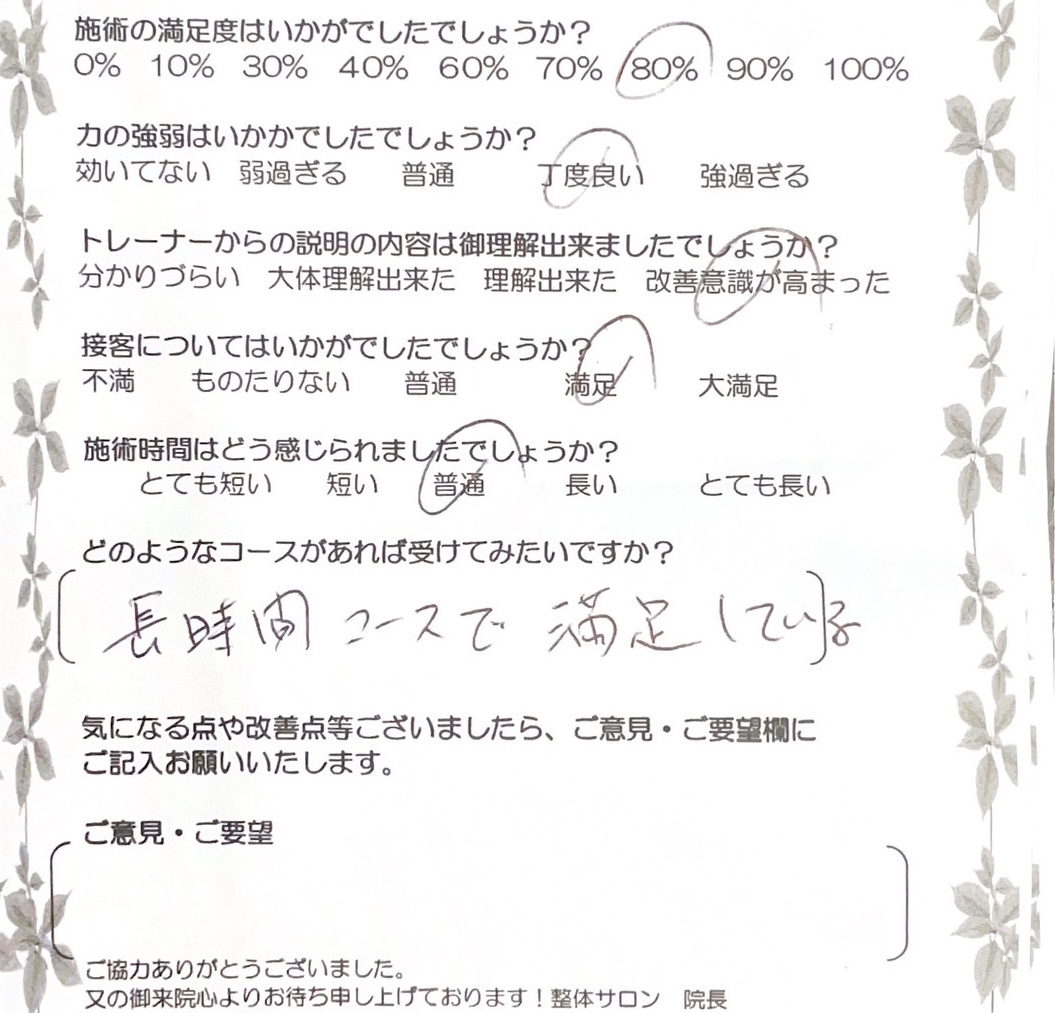 施術の満足度はいかがでしたでしょうか？
0% 10% 30% 40% 60% 70% 80% 90% 100%
力の強弱はいかかでしたでしょうか？
効いてない 弱過ぎる 普通 丁度良い 強過ぎる
トレーナーからの説明の内容は御理解出来ましたでしょうか？
分かりづらい 大体理解出来た 理解出来た 改善意識が高まった
接客についてはいかがでしたでしょうか？
不満 ものたりない 普通 満足 大満足
施術時間はどう感じられましたでしょうか？
とても短い 短い 普通 長い とても長い
どのようなコースがあれば受けてみたいですか？
長時間コースで 満足している
気になる点や改善点等ございましたら、ご意見・ご要望欄に
ご記入お願いいたします。
ご意見・ご要望
ご協力ありがとうございました。
又の御来院心よりお待ち申し上げております！整体サロン 院長